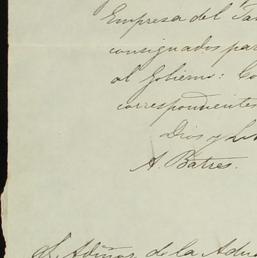 Empresa del
consignados par
al Gobierno: Co
correspondientes
Dios y L
A. Batres.
de la Adu